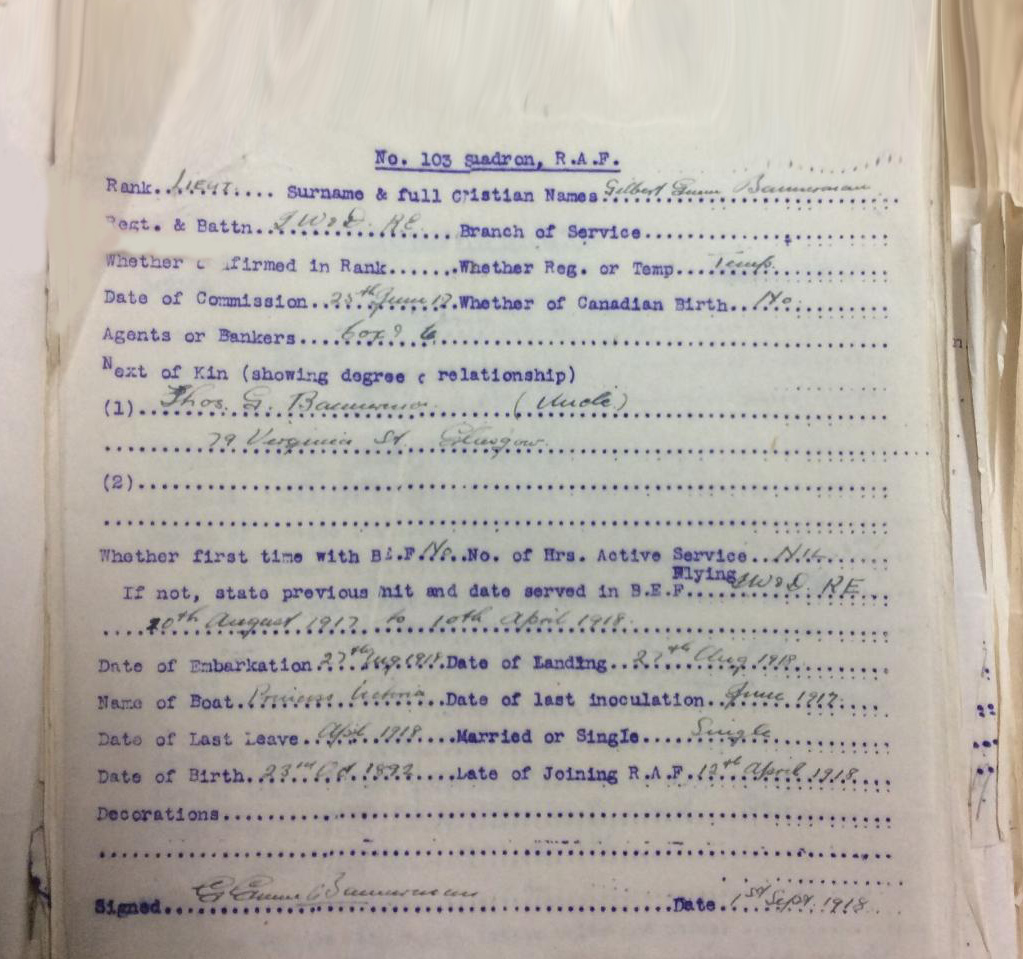 No. 103 Suadron, R.A.F.
Rank..Lieut..... Surname & full Cristian Names Gilbert Gunn Bannerman
Regt. & Battn..I.W&D. R.E......Branch of Service.......................
Whether c firmed in Rank.......Whether Reg. or Temp...Temp.............
Date of Commission...25th June 17.Whether of Canadian Birth..No.......
Agents or Bankers....Cox & Co..........................................
Next of Kin (showing degree c relationship)
(1)..Thos. G. Bannerman (Uncle)
79 Virginia St. Glasgow.
(2)....................................................................
Whether first time with B.E.F.No..No. of Hrs. Active Service...NIL....
Flying
If not, state previous nit and date served in B.E.F....I.W&D. R.E.
10th August 1917 to 10th April 1918.
Date of Embarkation.27th Aug.1918.Date of Landing..27th Aug 1918.
Name of Boat.Princess Victoria...Date of last inoculation..June 1917.
Date of Last Leave..April 1918....Married or Single....Single.........
Date of Birth.23rd Oct 1892....Late of Joining R.A.F.12th April 1918...
Decorations............................................................
Signed...G Gunn Bannerman...................Date.1st Sept. 1918.